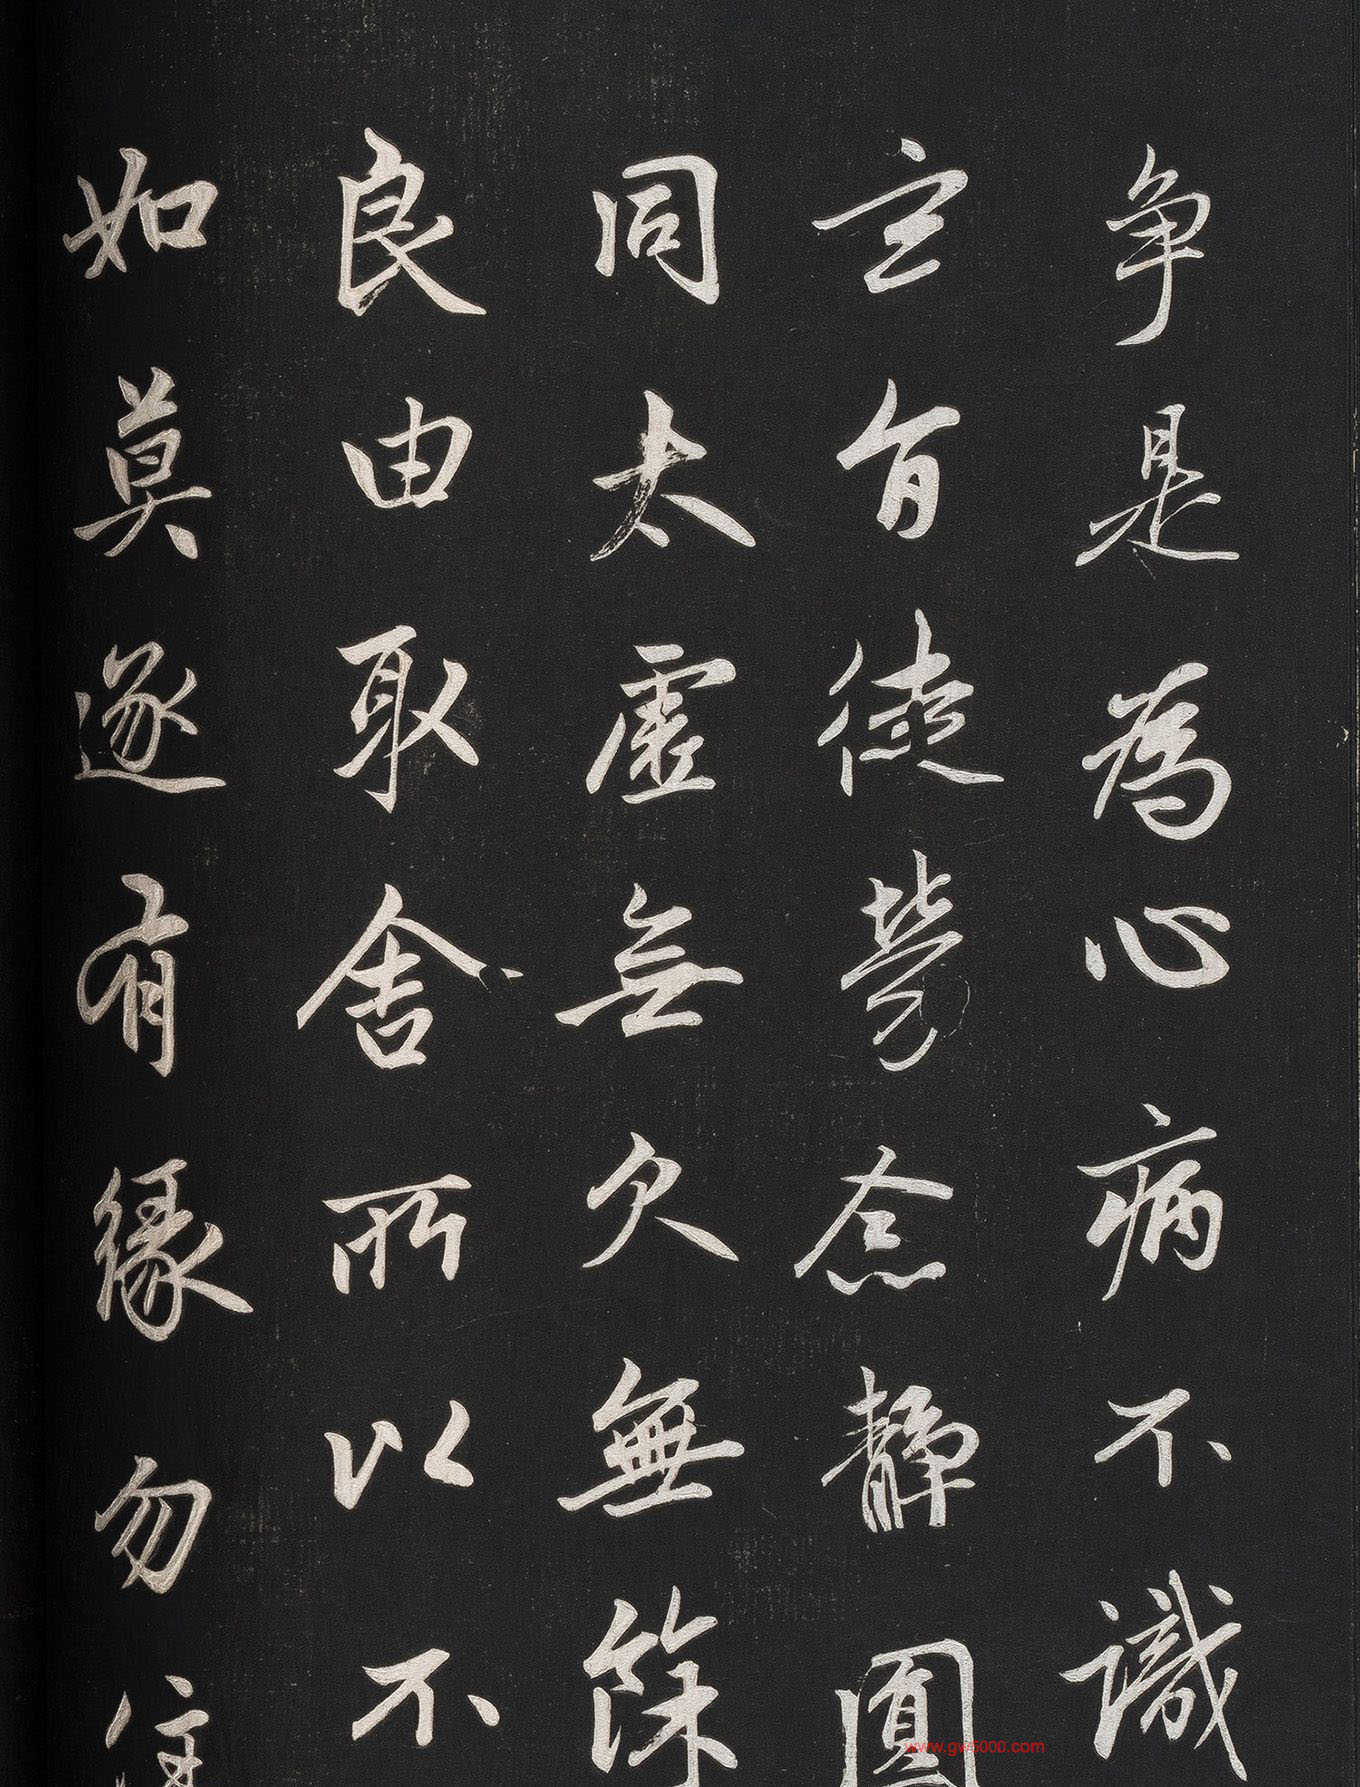 争是為心病不識
玄旨徒勞念静圓
同太虚無欠無餘
良由取舍所以不
如莫逐有緣勿住
www.gw6000.com